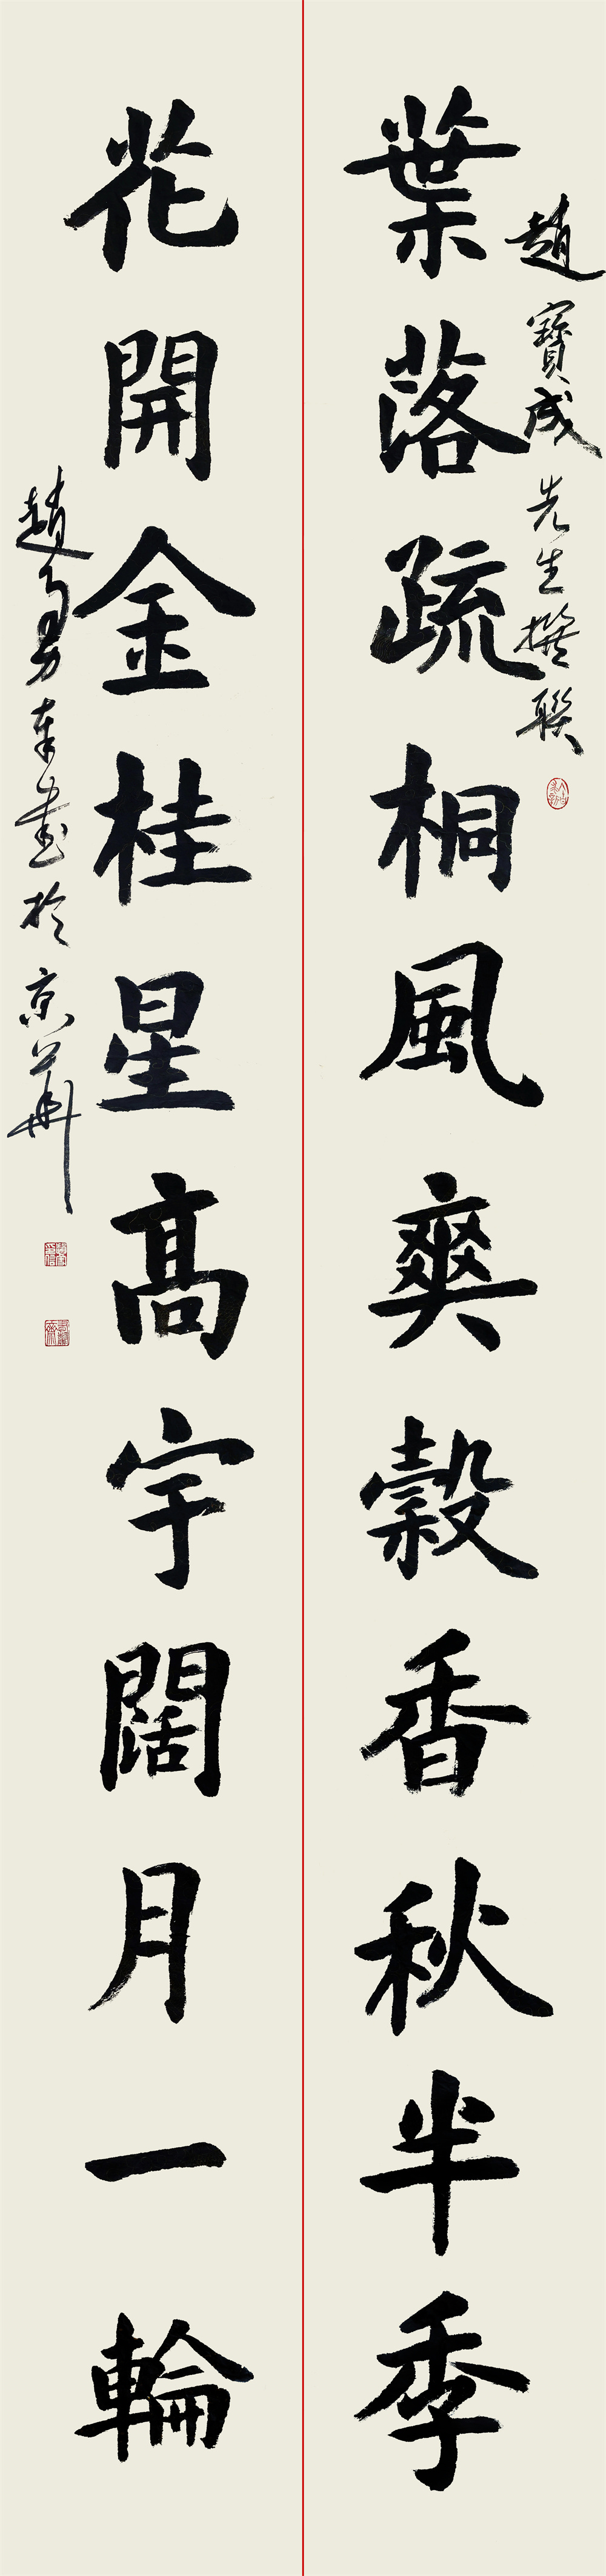 趙寶成先生撰聯
葉落疏桐風爽穀香秋半季
花開金桂星高宇闊月一輪
趙 勇奉書於京華